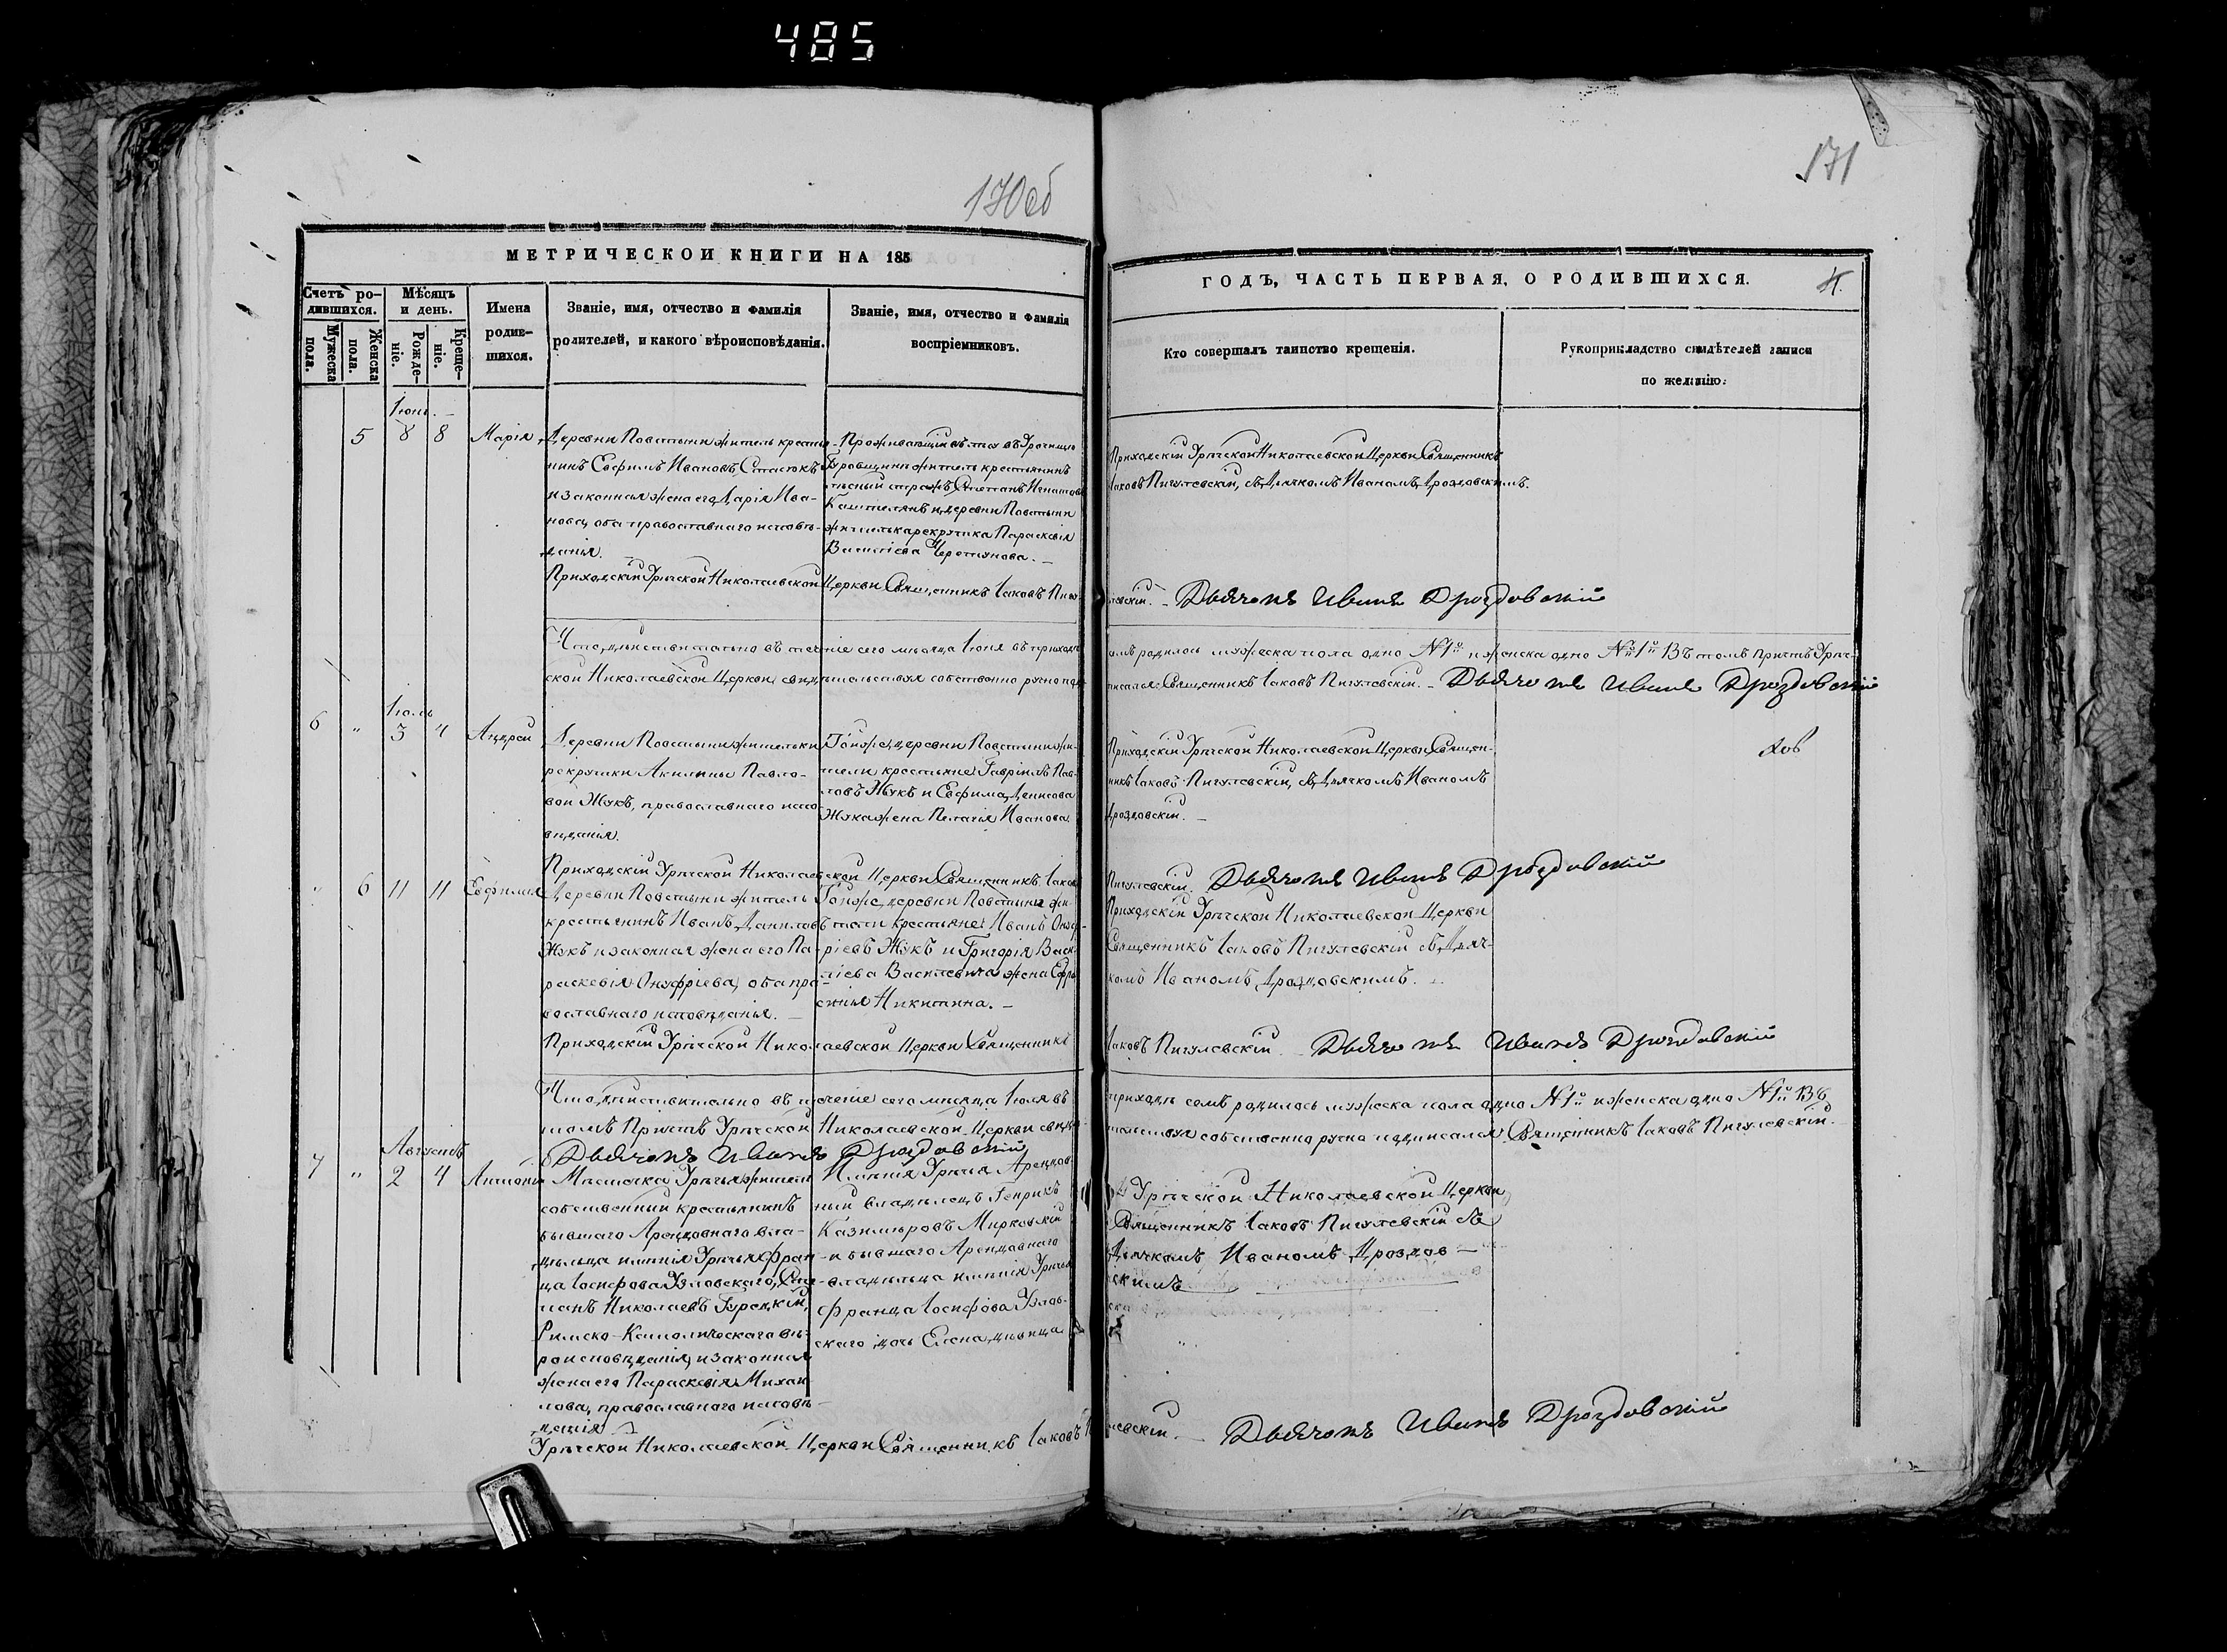 485
170об
171
МЕТРИЧЕСКОИ КНИГИ НА 185
ГОДЪ, ЧАСТЬ ПЕРВАЯ, О РОДИВШИХСЯ.
Счетъ ро-
дившихся.
Мужеска
пола.
Женска
пола.
Мѣсяцъ
и день.
Рожде-
ніе.
Креще-
ніе.
Имена
родив-
шихся.
Званіе, имя, отчество и фамилія
родителей, и какого вѣроисповѣданія.
Званіе, имя, отчество и фамилія
воспріемниковъ.
Кто совершалъ таинство крещенія.
Рукоприкладство свидѣтелей записи
по желанію.
5
8 8
Марія
Деревни Повстыни житель крестья-
нинъ Евфимъ Ивановъ Стасюкъ
и законная жена его Дарія Ива-
нова, оба православнаго исповѣ-
данія.
житель крестьянинъ
и деревни Повстыни
жителька рекрутка Параскевія
Приходскій Урѣчской Николаевской Церкви Священникъ
Іаковъ Пигулевскій, съ Дьячкомъ Иваномъ Дроздовскимъ.
Приходскій Урѣчской Николаевской Церкви Священникъ Іаковъ Пигу-
левскій. Дьячокъ Иванъ Дроздовскій
Что дѣйствительно въ теченіе сего мѣсяца Іюня въ приходѣ
семъ родилось мужеска пола одно №1й и женска одно №1й Въ томъ Причтъ Урѣч-
ской Николаевской Церкви свидѣтельствуя собственно ручно под-
писался: Священникъ Іаковъ Пигулевскій. Дьячокъ Иванъ Дроздовскій
6 " 3 4
Андрей
Деревни Повстыни жительки
рекрутки Акилины Павло-
вой Жукъ, православнаго испо-
вѣданія.
Тойже деревни Повстыни жи-
тели крестьяне: Гавріилъ Пав-
ловъ Жукъ и Евфима Денисова
Жука жена Пелагія Иванова
Приходскій Урѣчской Николаевской Церкви Священ-
никъ Іаковъ Пигулевскій, съ Дьячкомъ Иваномъ
Дроздовскій.
Приходскій Урѣчской Николаевской Церкви Священникъ Іаковъ
Пигулевскій. Дьячокъ Иванъ Дроздовскій
" 6 11 11
Евфимія
Деревни Повстыни житель
крестьянинъ Иванъ Даниловъ
Жукъ и законная жена его Па-
раскевія Онуфріева, оба пра-
вославнаго исповѣданія.
Тойже деревни Повстыни жи-
тели крестьяне: Иванъ Онуф-
ріевъ Жукъ и Григорія Васи-
ліева Василевича жена Евфро-
синія Никитина.
Приходскій Урѣчской Николаевской Церкви
Священникъ Іаковъ Пигулевскій съ Дьяч-
комъ Иваномъ Дроздовскимъ.
Приходскій Урѣчской Николаевской Церкви Священникъ
Іаковъ Пигулевскій. Дьячокъ Иванъ Дроздовскій
Что дѣйствительно въ теченіе сего мѣсяца Іюля въ
приходѣ семъ родилось мужеска пола одно №1й и женска одно №1й Въ
томъ Причтъ Урѣчской Николаевской Церкви свидѣ-
тельствуя собственно ручно подписался Священникъ Іаковъ Пигулевскій.
Дьячокъ Иванъ Дроздовскій
Августъ
7 " 2 4
Антоній
Мѣстечка Урѣчья житель
собственный крестьянинъ
бывшаго Арендовнаго вла-
дѣльца имѣнія Урѣчья Фран-
ца Іосифова Узловскаго, Сте-
панъ Николаевъ Гурецкій,
Римско-Католическаго вѣ-
роисповѣданія, и законная
жена его Параскевія Михаи-
лова, православнаго исповѣ-
данія
Имѣнія Урѣчья Арендов-
ный владѣлецъ Генрикъ
Казиміровъ Мирковскій
и бывшаго Арендовнаго
владѣльца имѣнія Урѣчья
Франца Іосифова Узлов-
скаго дочь Елена дѣвица
Урѣчской Николаевской Церкви
Священникъ Іаковъ Пигулевскій съ
Дьячкомъ Иваномъ Дроздов-
скимъ
Урѣчской Николаевской Церкви Священникъ Іаковъ
левскій. Дьячокъ Иванъ Дроздовскій